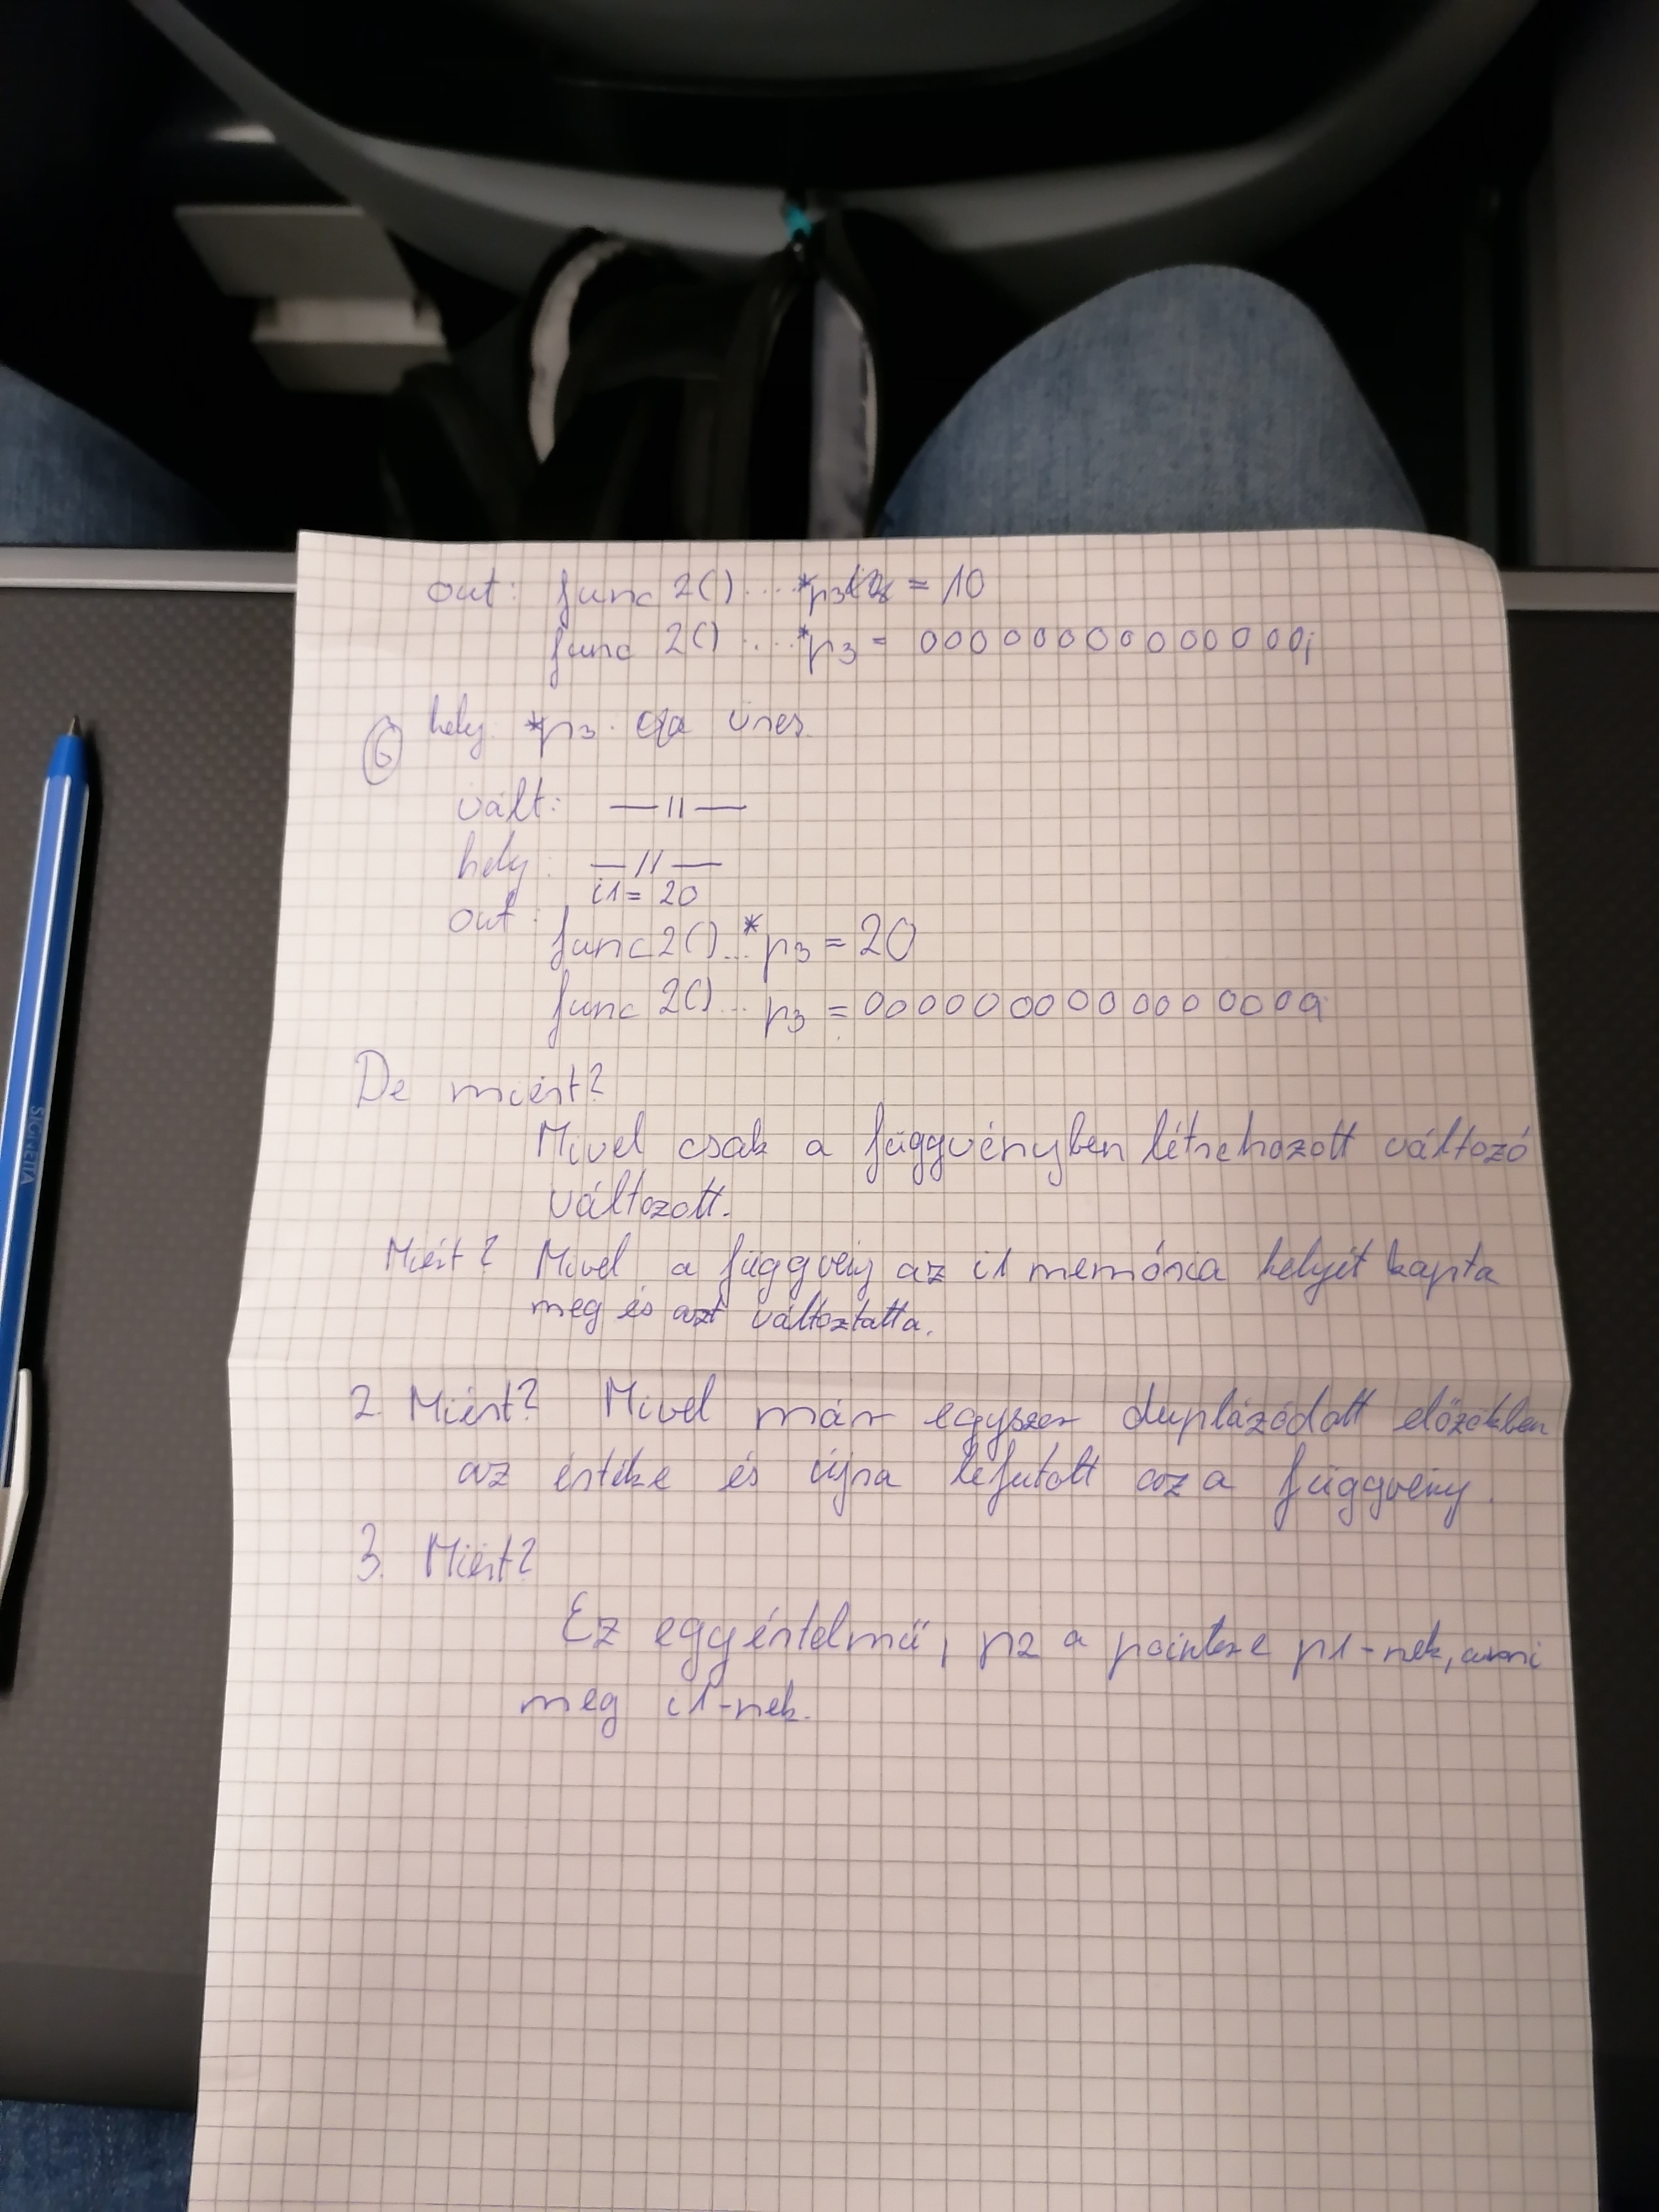 out: func 2() .... *p3 = 10
func 2() .... *p3 = 00000000000000i
6 hely: *p3: üres
vált: —11—
hely: —11—
i1 = 20
out:
func 2() ... *p3 = 20
func 2() ... p3 = 000000000000000a
De miért?
Mivel csak a függvényben létrehozott változó
változott.
Miért? Mivel a függvény az i1 memória helyét kapta
meg és azt változtatta.
2. Miért? Mivel már egyszer duplázódott előzőkben
az értéke és újra lefutott az a függvény.
3. Miért?
Ez egyértelmű, p2 a pointere p1-nek, ami
meg i1-nek.
SIGNETTA